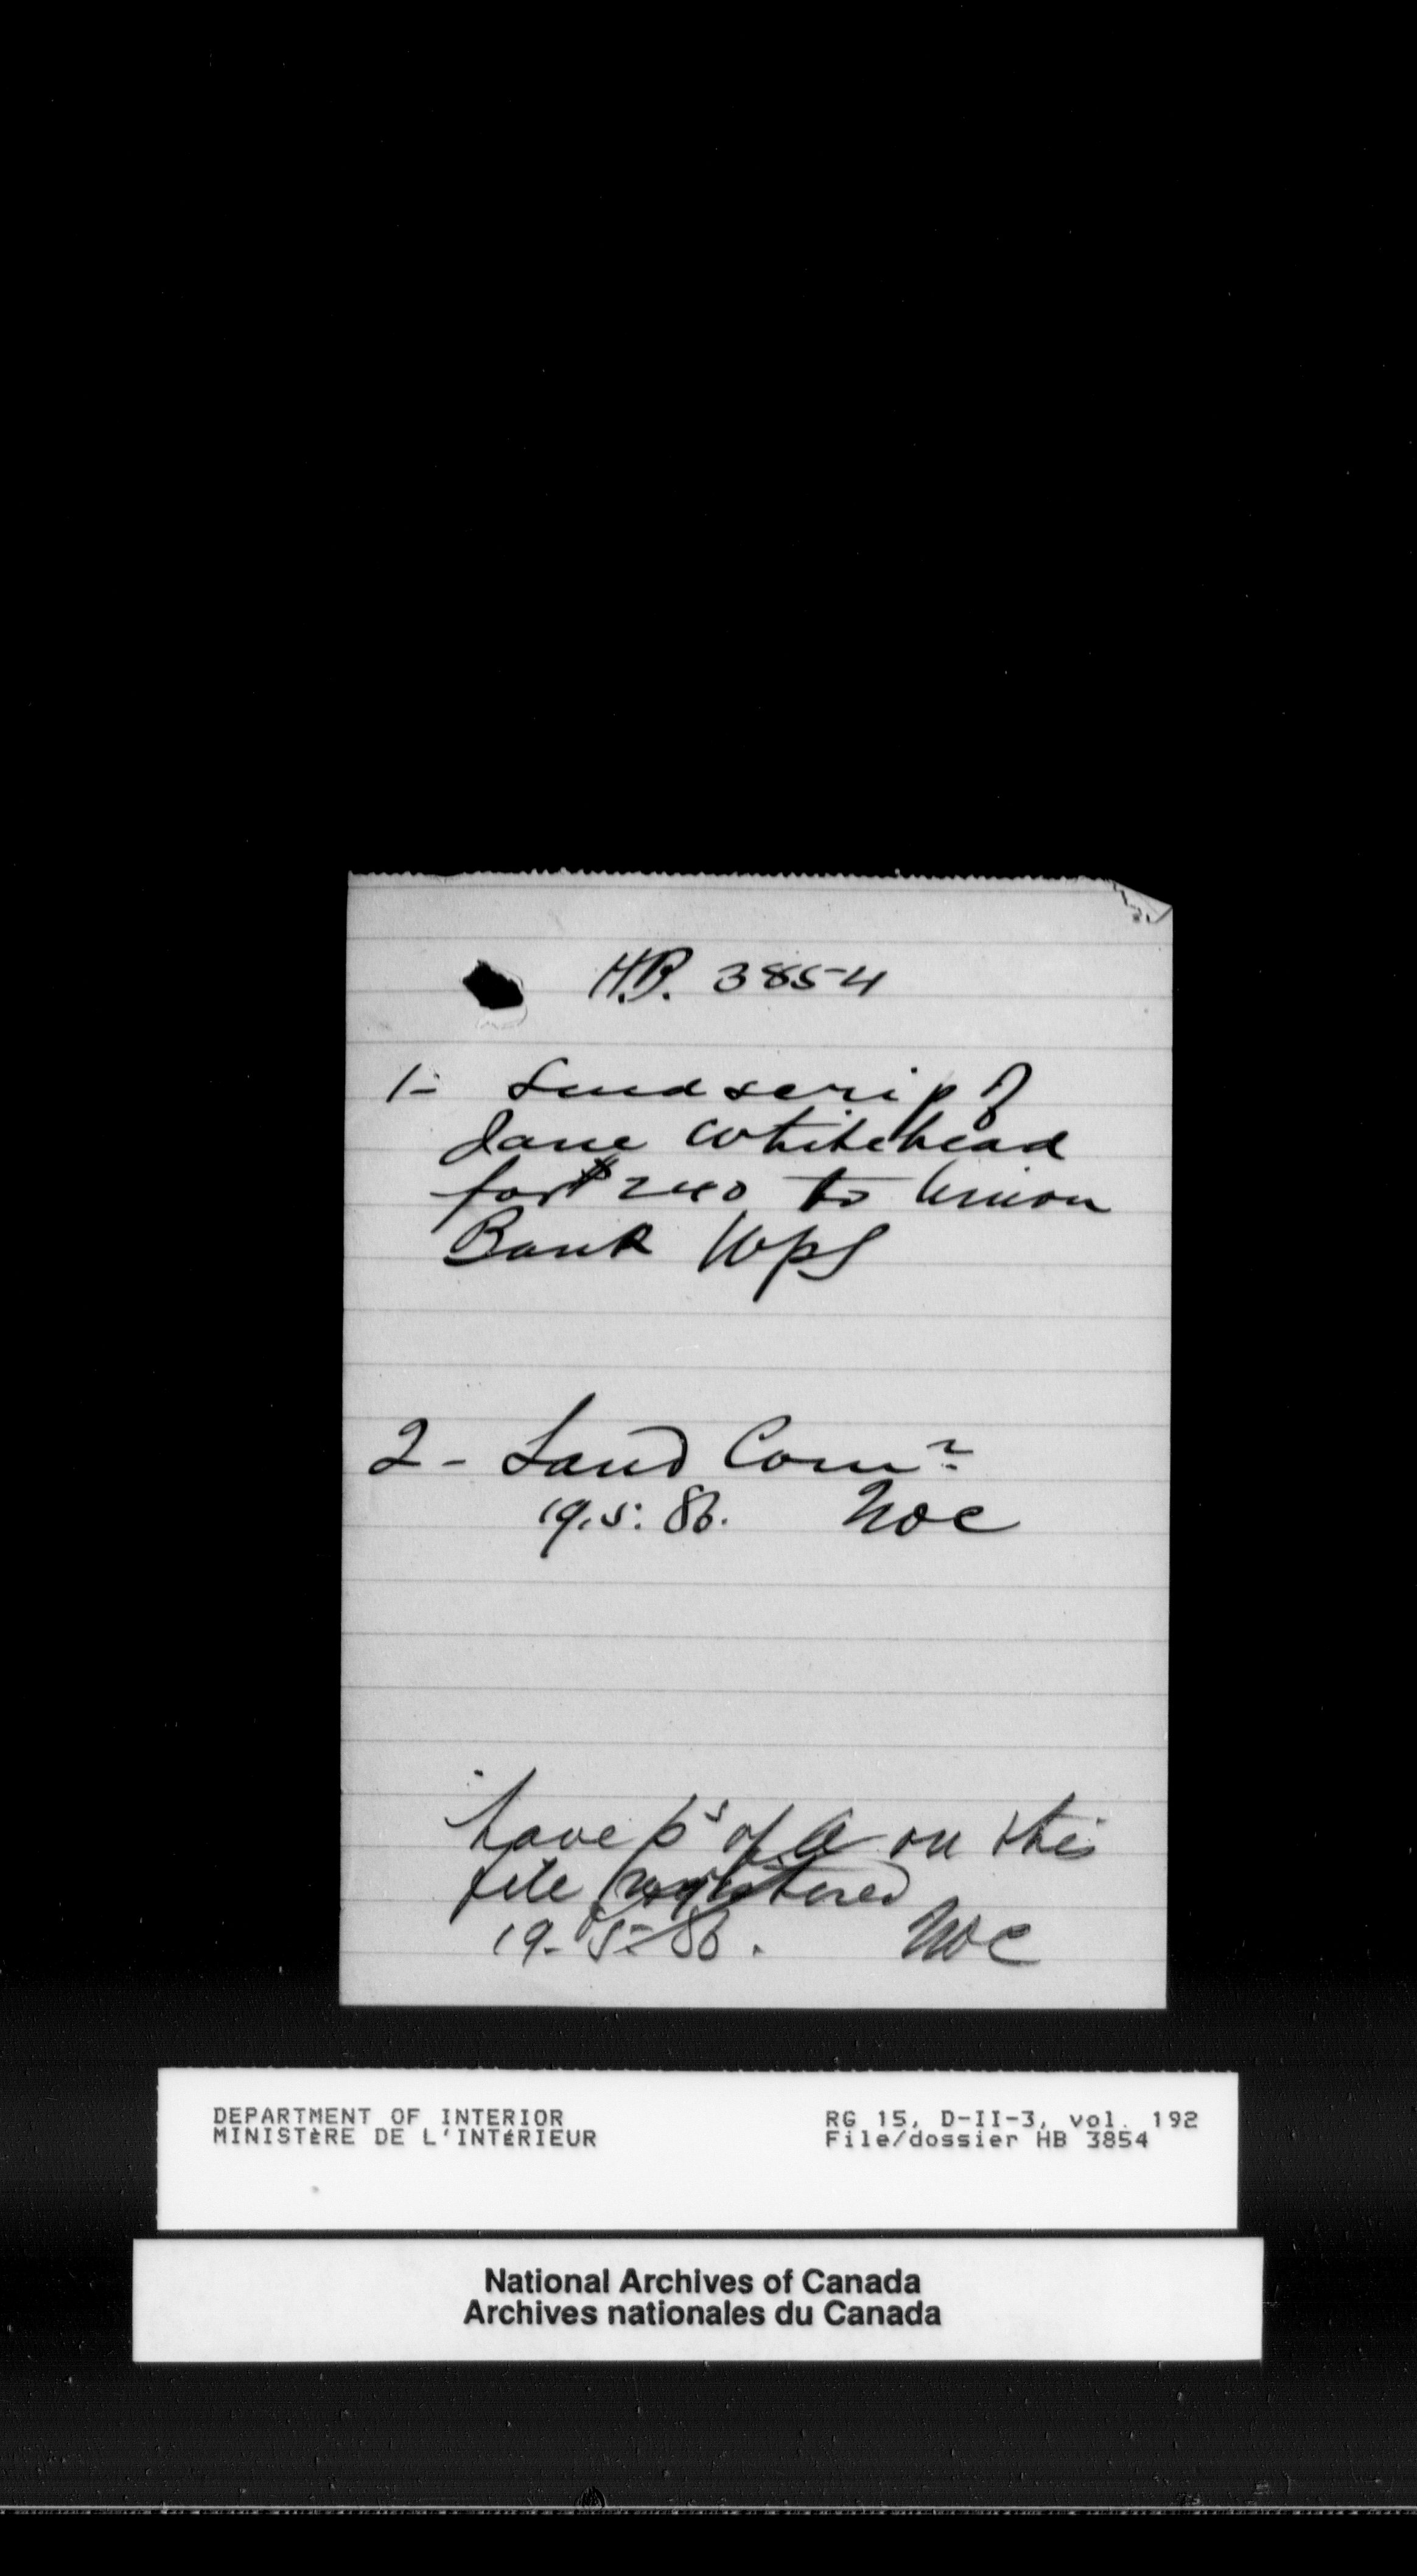 H.B. 3854
1- Send scrip of
Jane Whitehead
for $240 to Union
Bank Wpg
2- Land Comr
19.5.86.
have ps of A on this
file registered
19-5-86.
DEPARTMENT OF INTERIOR
MINISTÈRE DE L'INTÉRIEUR
RG 15, D-II-3, vol. 192
File/dossier HB 3854
National Archives of Canada
Archives nationales du Canada